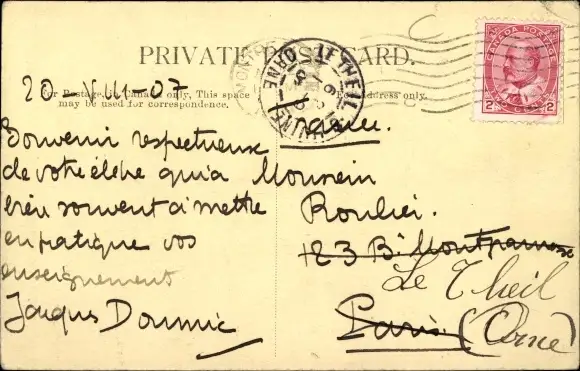 PRIVATE POST CARD.
CANADA POSTAGE
2 2
LE THEIL
ORNE
20 - VIII - 07
For Postage, Canada only, This space
may be used for correspondence.
For Address only.
France.
Souvenir respectueux
de votre élève qui a
bien souvent à mettre
en pratique vos
enseignement
Jacques Doumic
Monsieur
Roulier.
123 Bd Montparnasse
Paris
Le Theil
(Orne)